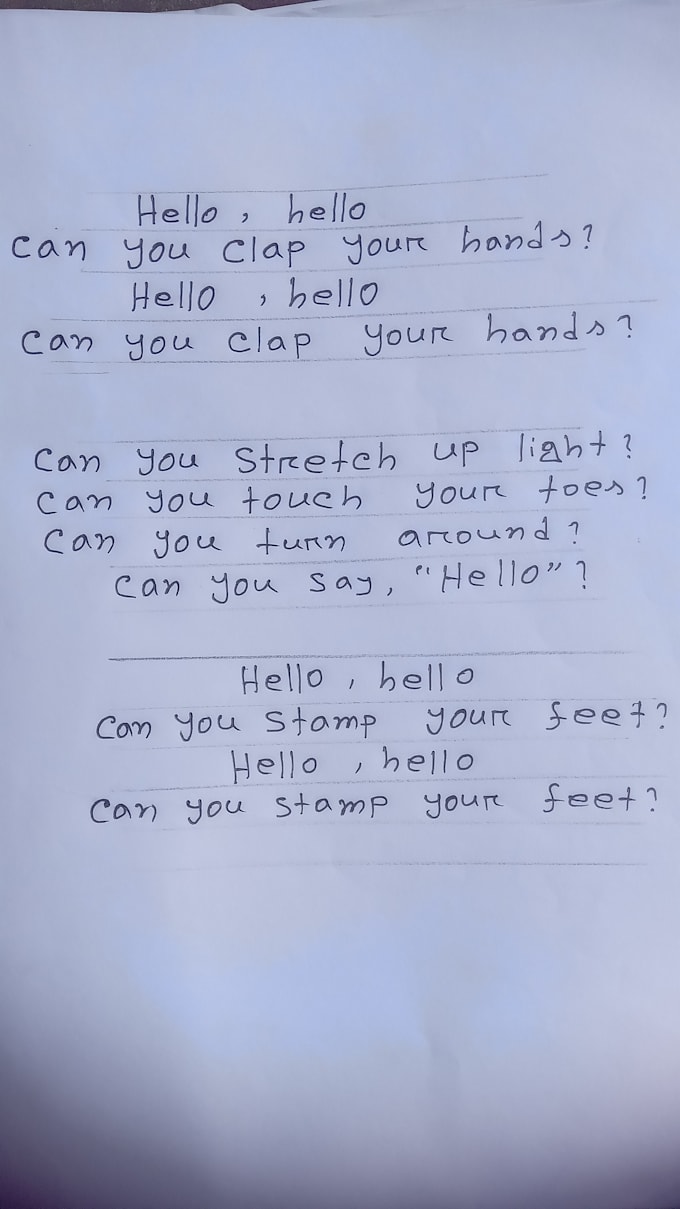 Hello, hello
Can you clap your hands?
Hello, hello
Can you clap your hands?
Can you stretch up light?
Can you touch your toes?
Can you turn around?
Can you say, "Hello"?
Hello, hello
Can you stamp your feet?
Hello, hello
Can you stamp your feet?